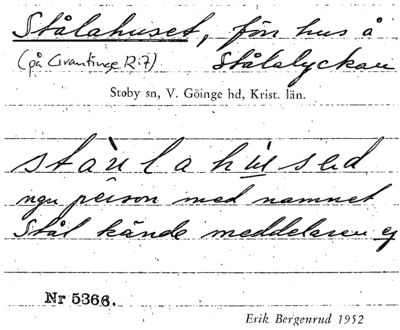 Stålahuset, förr hus å
(på Grantinge R:7) Stålalyckan
Stoby sn, V. Göinge hd, Krist. län.
stàu̇lahùsəd
ngn person med namnet
Stål kände meddelaren ej
Nr 5366.
Erik Bergenrud 1952